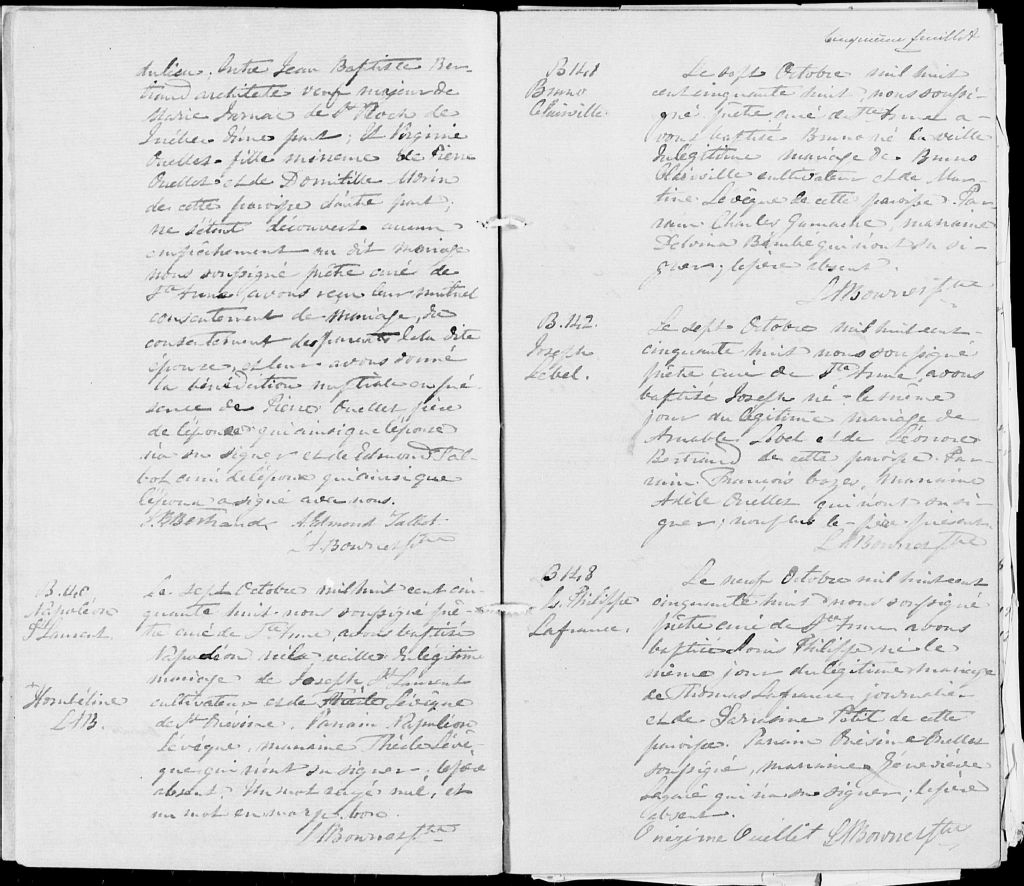 du lieu. Entre Jean Baptiste Ber-
trand architecte veuf majeur de
Marie de St Roch de
Québec d'une part; Et Virginie
Ouellet fille mineure de Pierre
Ouellet et de Domitille Morin
de cette paroisse d'autre part;
ne s'étant découvert aucun
empêchement au dit mariage
nous soussigné prêtre curé de
Ste Anne, avons reçu leur mutuel
consentement de mariage, du
consentement des parents de la dite
épouse, et leur avons donné
la bénédiction nuptiale en pré-
sence de Pierre Ouellet père
de l'épouse qui ainsi que l'épouse
n'a su signer et de Edmond Tal-
bot ami de l'époux qui ainsi que
l'époux a signé avec nous.
J. B Bertrand A. Edmond Talbot
L A. Bourret Ptre
B. 140
Napoléon
St Laurent
Le sept Octobre mil huit cent cin
quante huit nous soussigné prê-
tre curé de Ste Anne, avons baptisé
Napoléon né la veille du légitime
mariage de Joseph St Laurent
cultivateur et de Lévêque
de Ste Parrain Napoléon
Lévêque, marraine Thècle Lévê-
que qui n'ont su signer; le père
absent. Un mot rayé nul, et
un mot en marge bon.
L A Bourret Ptre
+ Hombéline
L A B.
Cinquième feuillet
B 141
Bruno
Clairville.
Le sept Octobre mil huit
cent cinquante huit, nous soussi-
gné prêtre curé de Ste Anne a-
vons baptisé Bruno né la veille
du légitime mariage de Bruno
Clairville cultivateur et de Mar-
tine Lévêque de cette paroisse. Par-
rain Charles Gamache, marraine
Delvina Bérubé qui n'ont su si-
gner; le père absent.
L A Bourret Ptre
B. 142.
Joseph
Lebel.
Le sept Octobre mil huit cent-
cinquante huit nous soussigné
prêtre curé de Ste Anne, avons
baptisé Joseph né le même
jour du légitime mariage de
Amable Lebel et de Léonore
Bertrand de cette paroisse. Par-
rain François, marraine
Adèle Ouellet qui n'ont su si-
gner; le père présent.
L A Bourret Ptre
B 143
Ls. Philippe
Lafrance.
Le neuf Octobre mil huit cent
cinquante huit, nous soussigné
prêtre curé de Ste Anne avons
baptisé Louis Philippe né le
même jour du légitime mariage
de Thomas Lafrance journalier
et de Petit de cette
paroisse. Parrain Onésime Ouellet
soussigné, marraine Géneviève
qui n'a su signer; le père
absent.
Onézime Ouellet L A Bourret Ptre